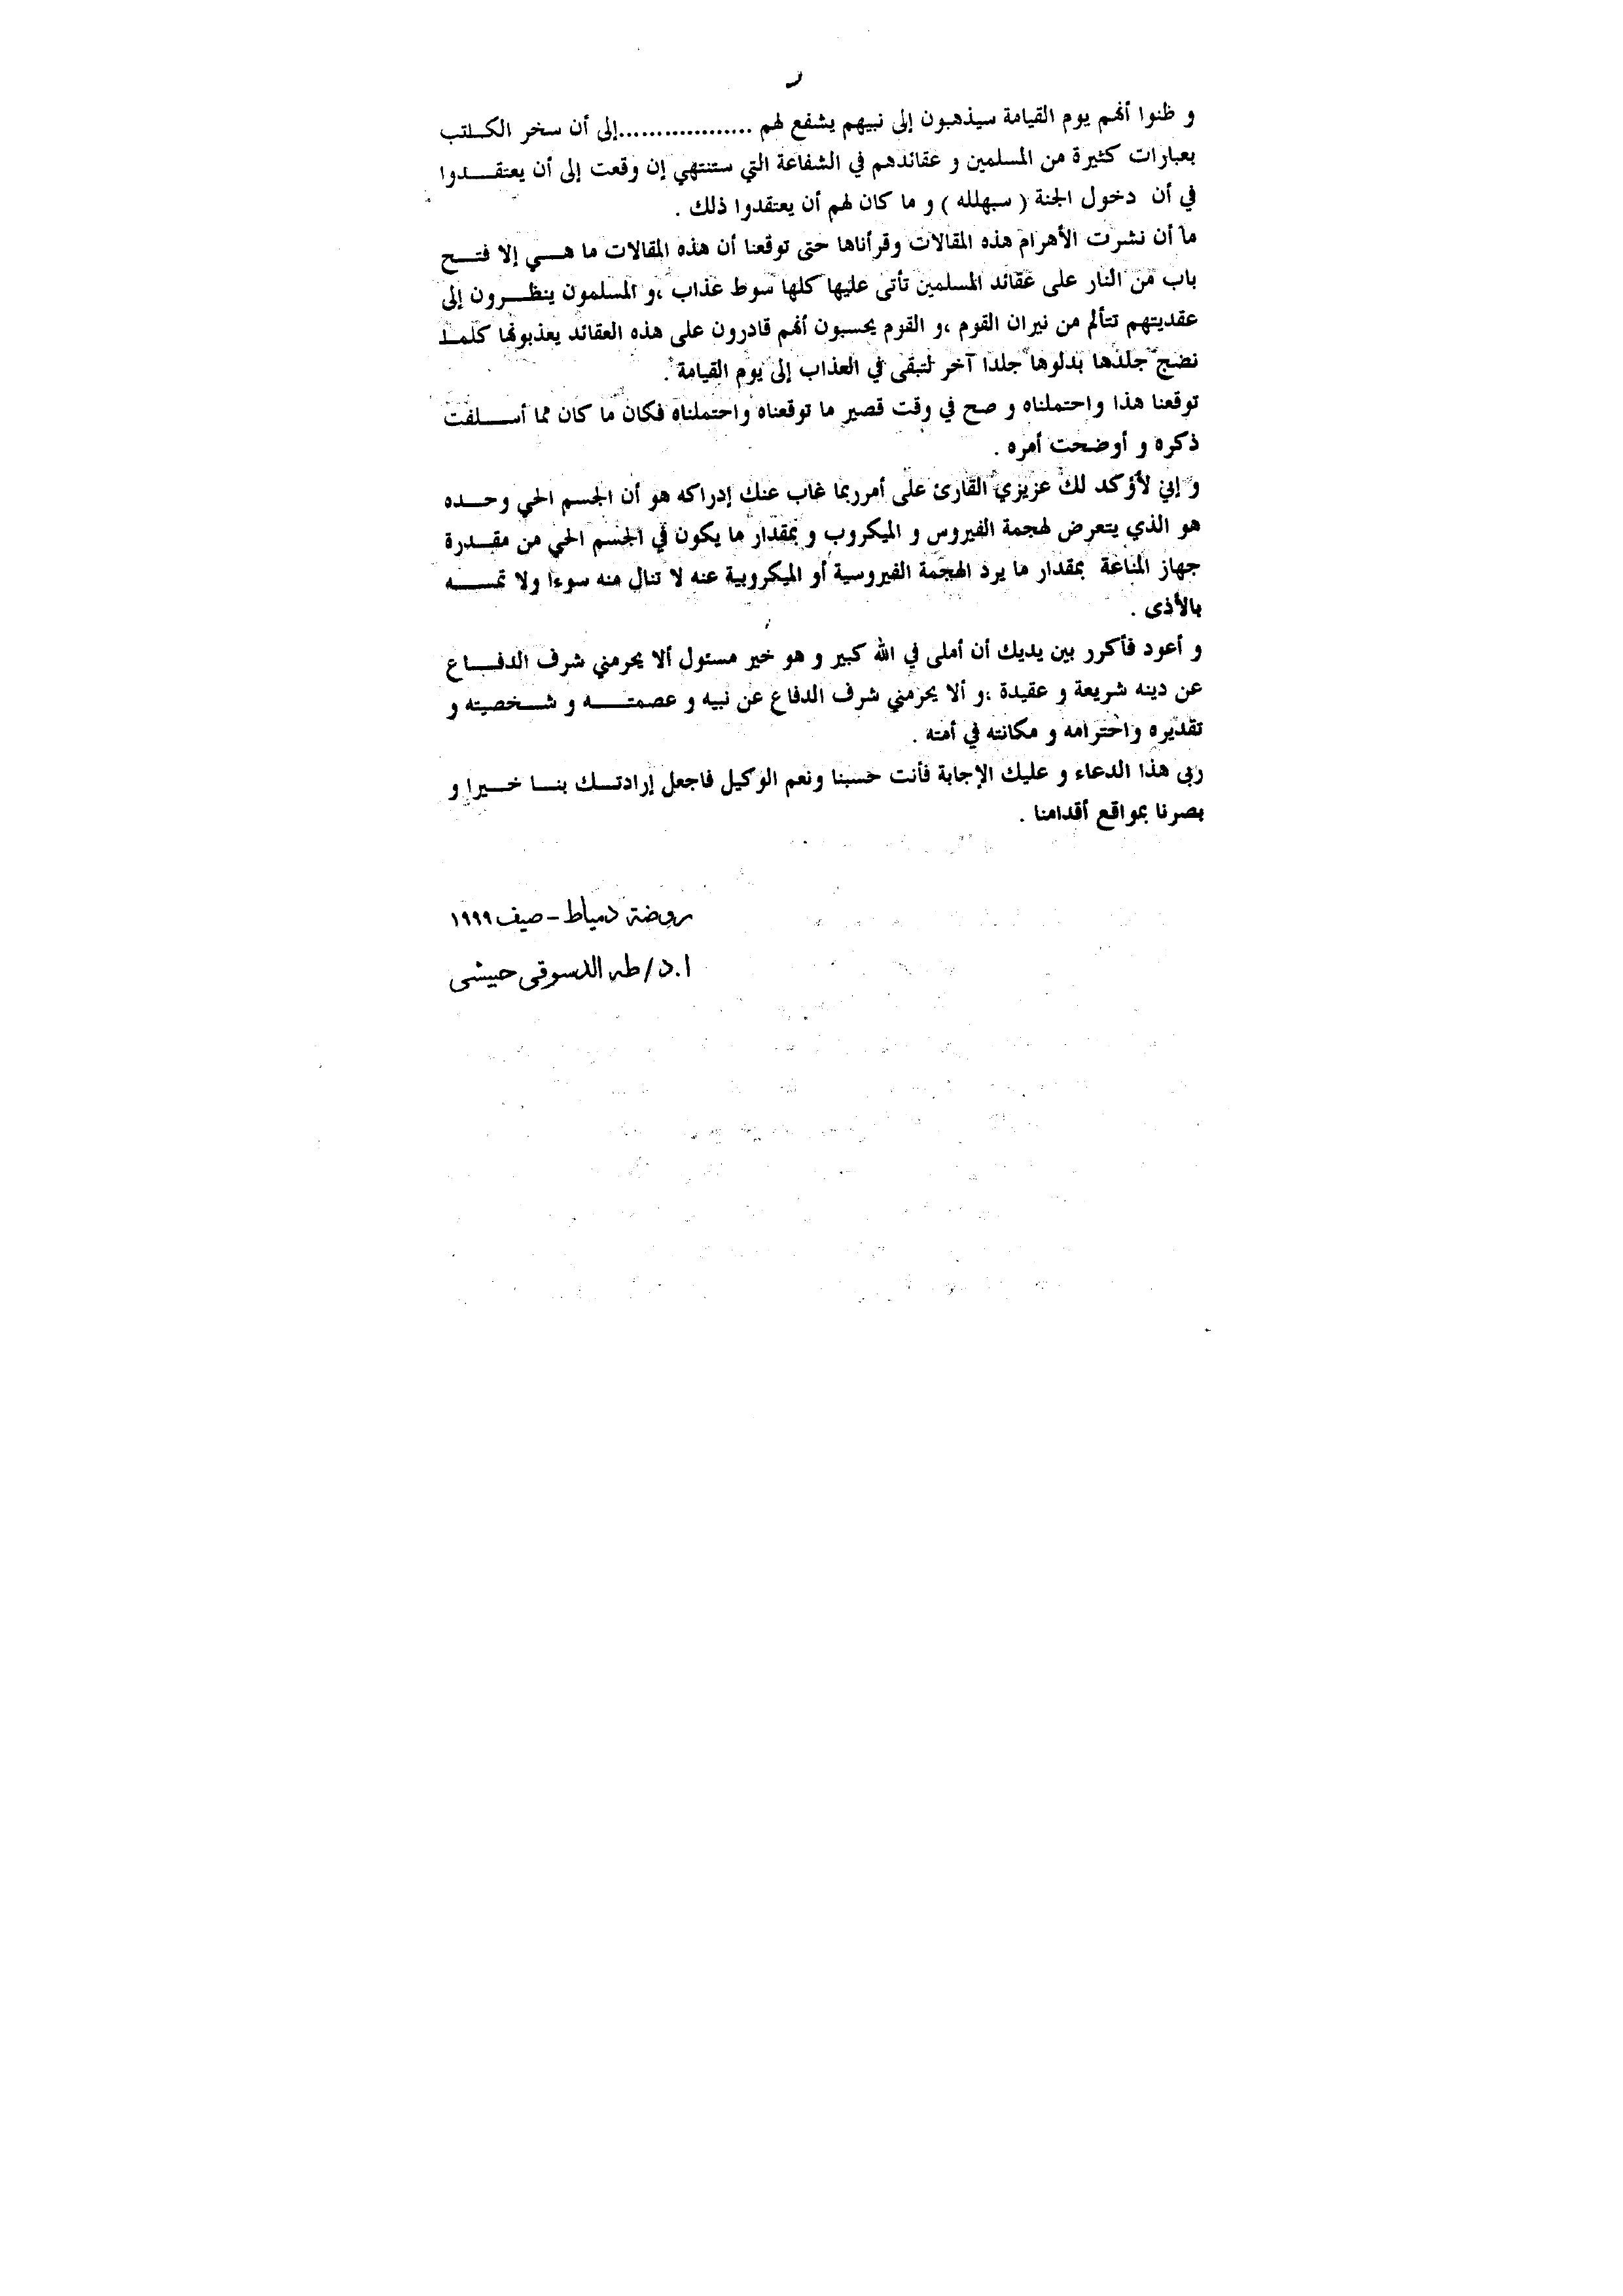 ر
و ظنوا أنهم يوم القيامة سيذهبون إلى نبيهم يشفع لهم ..................إلى أن سخر الكـاتب
بعبارات كثيرة من المسلمين و عقائدهم في الشفاعة التي ستنتهي إن وقعت إلى أن يعتقـــدوا
في أن دخول الجنة ( سبهلله ) و ما كان لهم أن يعتقدوا ذلك .
ما أن نشرت الأهرام هذه المقالات وقرأناها حتى توقعنا أن هذه المقالات ما هـــي إلا فتـــح
باب من النار على عقائد المسلمين تأتى عليها كلها سوط عذاب ،و المسلمون ينظـــرون إلى
عقديتهم تتألم من نيران القوم ،و القوم يحسبون أنهم قادرون على هذه العقائد يعذبونها كلمـا
نضج جلدها بدلوها جلدا آخر لتبقى في العذاب إلى يوم القيامة .
توقعنا هذا واحتملناه و صح في وقت قصير ما توقعناه واحتملناه فكان ما كان مما أســـلفت
ذكره و أوضحت أمره .
و إني لأؤكد لك عزيزي القارئ على أمرربما غاب عنك إدراكه هو أن الجسم الحي وحـــده
هو الذي يتعرض لهجمة الفيروس و الميكروب و بمقدار ما يكون في الجسم الحي من مقـــدرة
جهاز المناعة بمقدار ما يرد الهجمة الفيروسية أو الميكروبية عنه لا تنال منه سوءا ولا تمســـه
بالأذى .
و أعود فأكرر بين يديك أن أملى في الله كبير و هو خير مسئول ألا يحرمني شرف الدفـــاع
عن دينه شريعة و عقيدة ،و ألا يحرمني شرف الدفاع عن نبيه و عصمتـــه و شـــخصيته و
تقديره واحترامه و مكانته في أمته .
ربى هذا الدعاء و عليك الإجابة فأنت حسبنا ونعم الوكيل فاجعل إرادتـــك بنـــا خـــيرا و
بصرنا بمواقع أقدامنا .
روضة دمياط – صيف ١٩٩٩
ا.د/ طه الدسوقى حبيشى